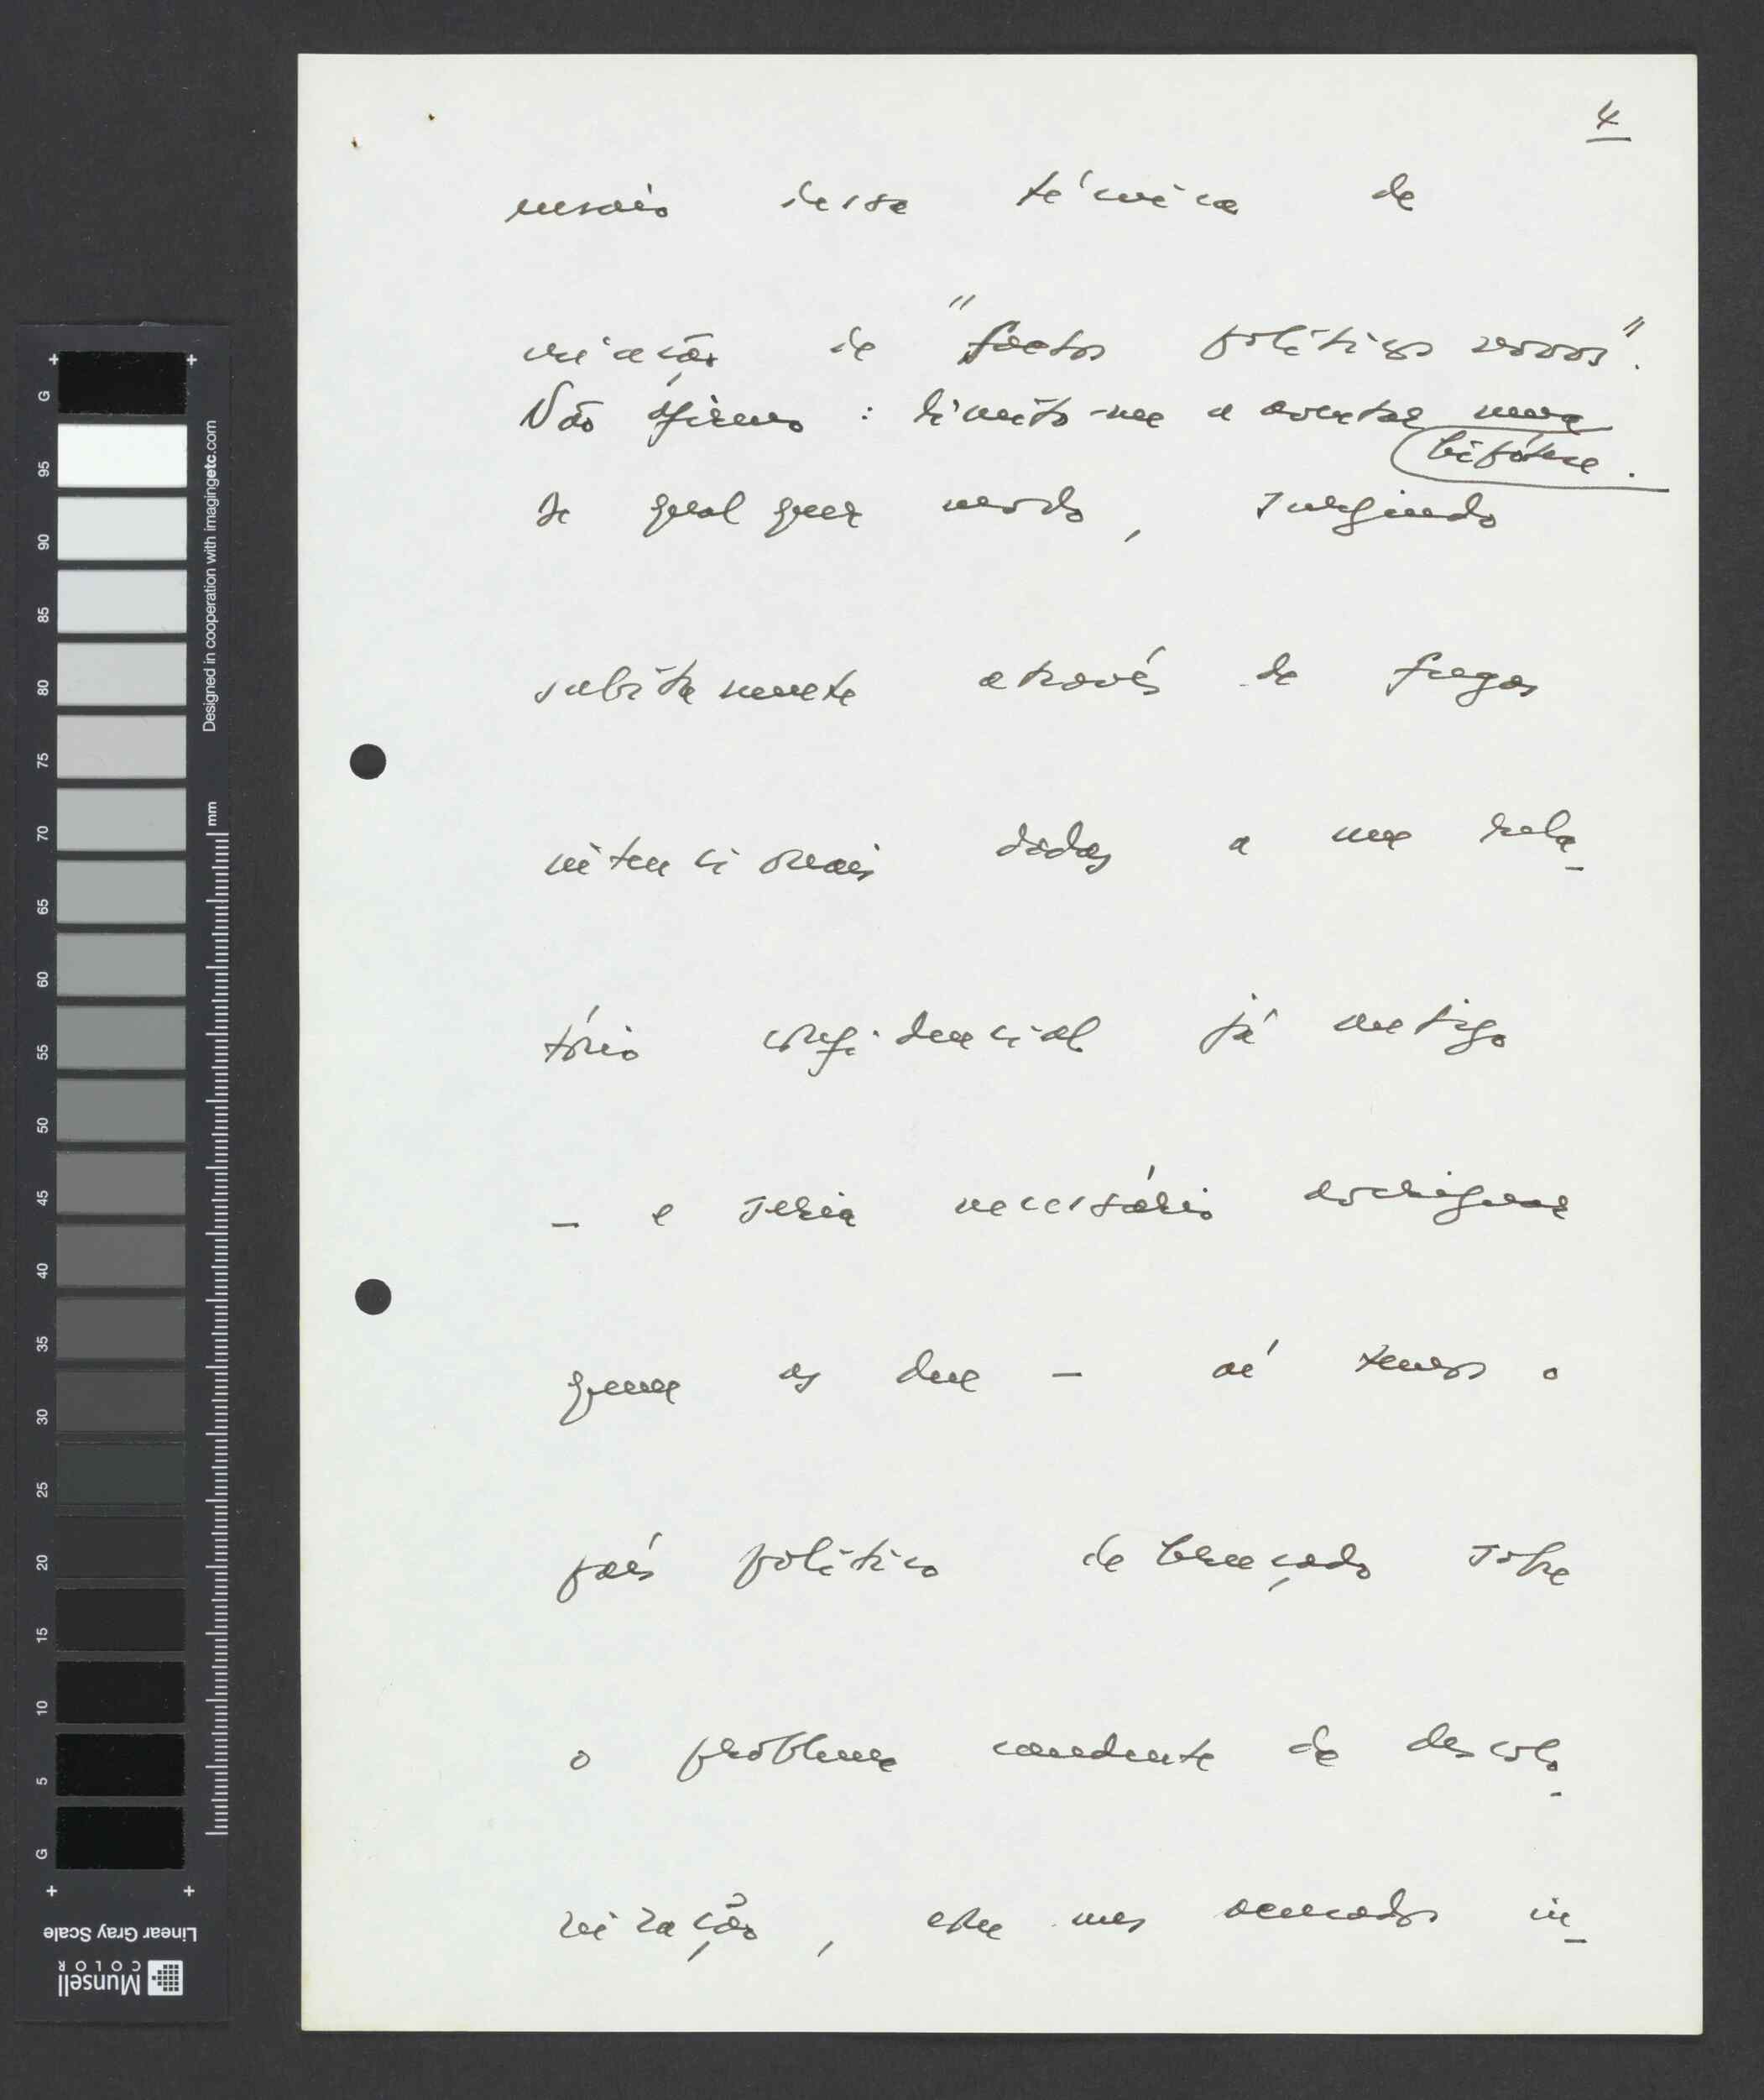 4
dessa técnica de
criação de "factos políticos novos".
Não afirmo: limito-me a aventar uma
hipótese.
De qualquer modo, surgindo
subitamente através de fugas
intencionais dadas a um rela-
tório confidencial já antigo
- e seria necessário averiguar
quem as deu - aí temos o
país político debruçado sobre
o problema candente da descolo-
nização, com uns acusados in-
G
95
90
85
80
75
70
65
60
55
50
45
40
35
30
25
20
15
10
5
G
Designed in cooperation with imagingetc.com
mm
Linear Gray Scale
Munsell
COLOR